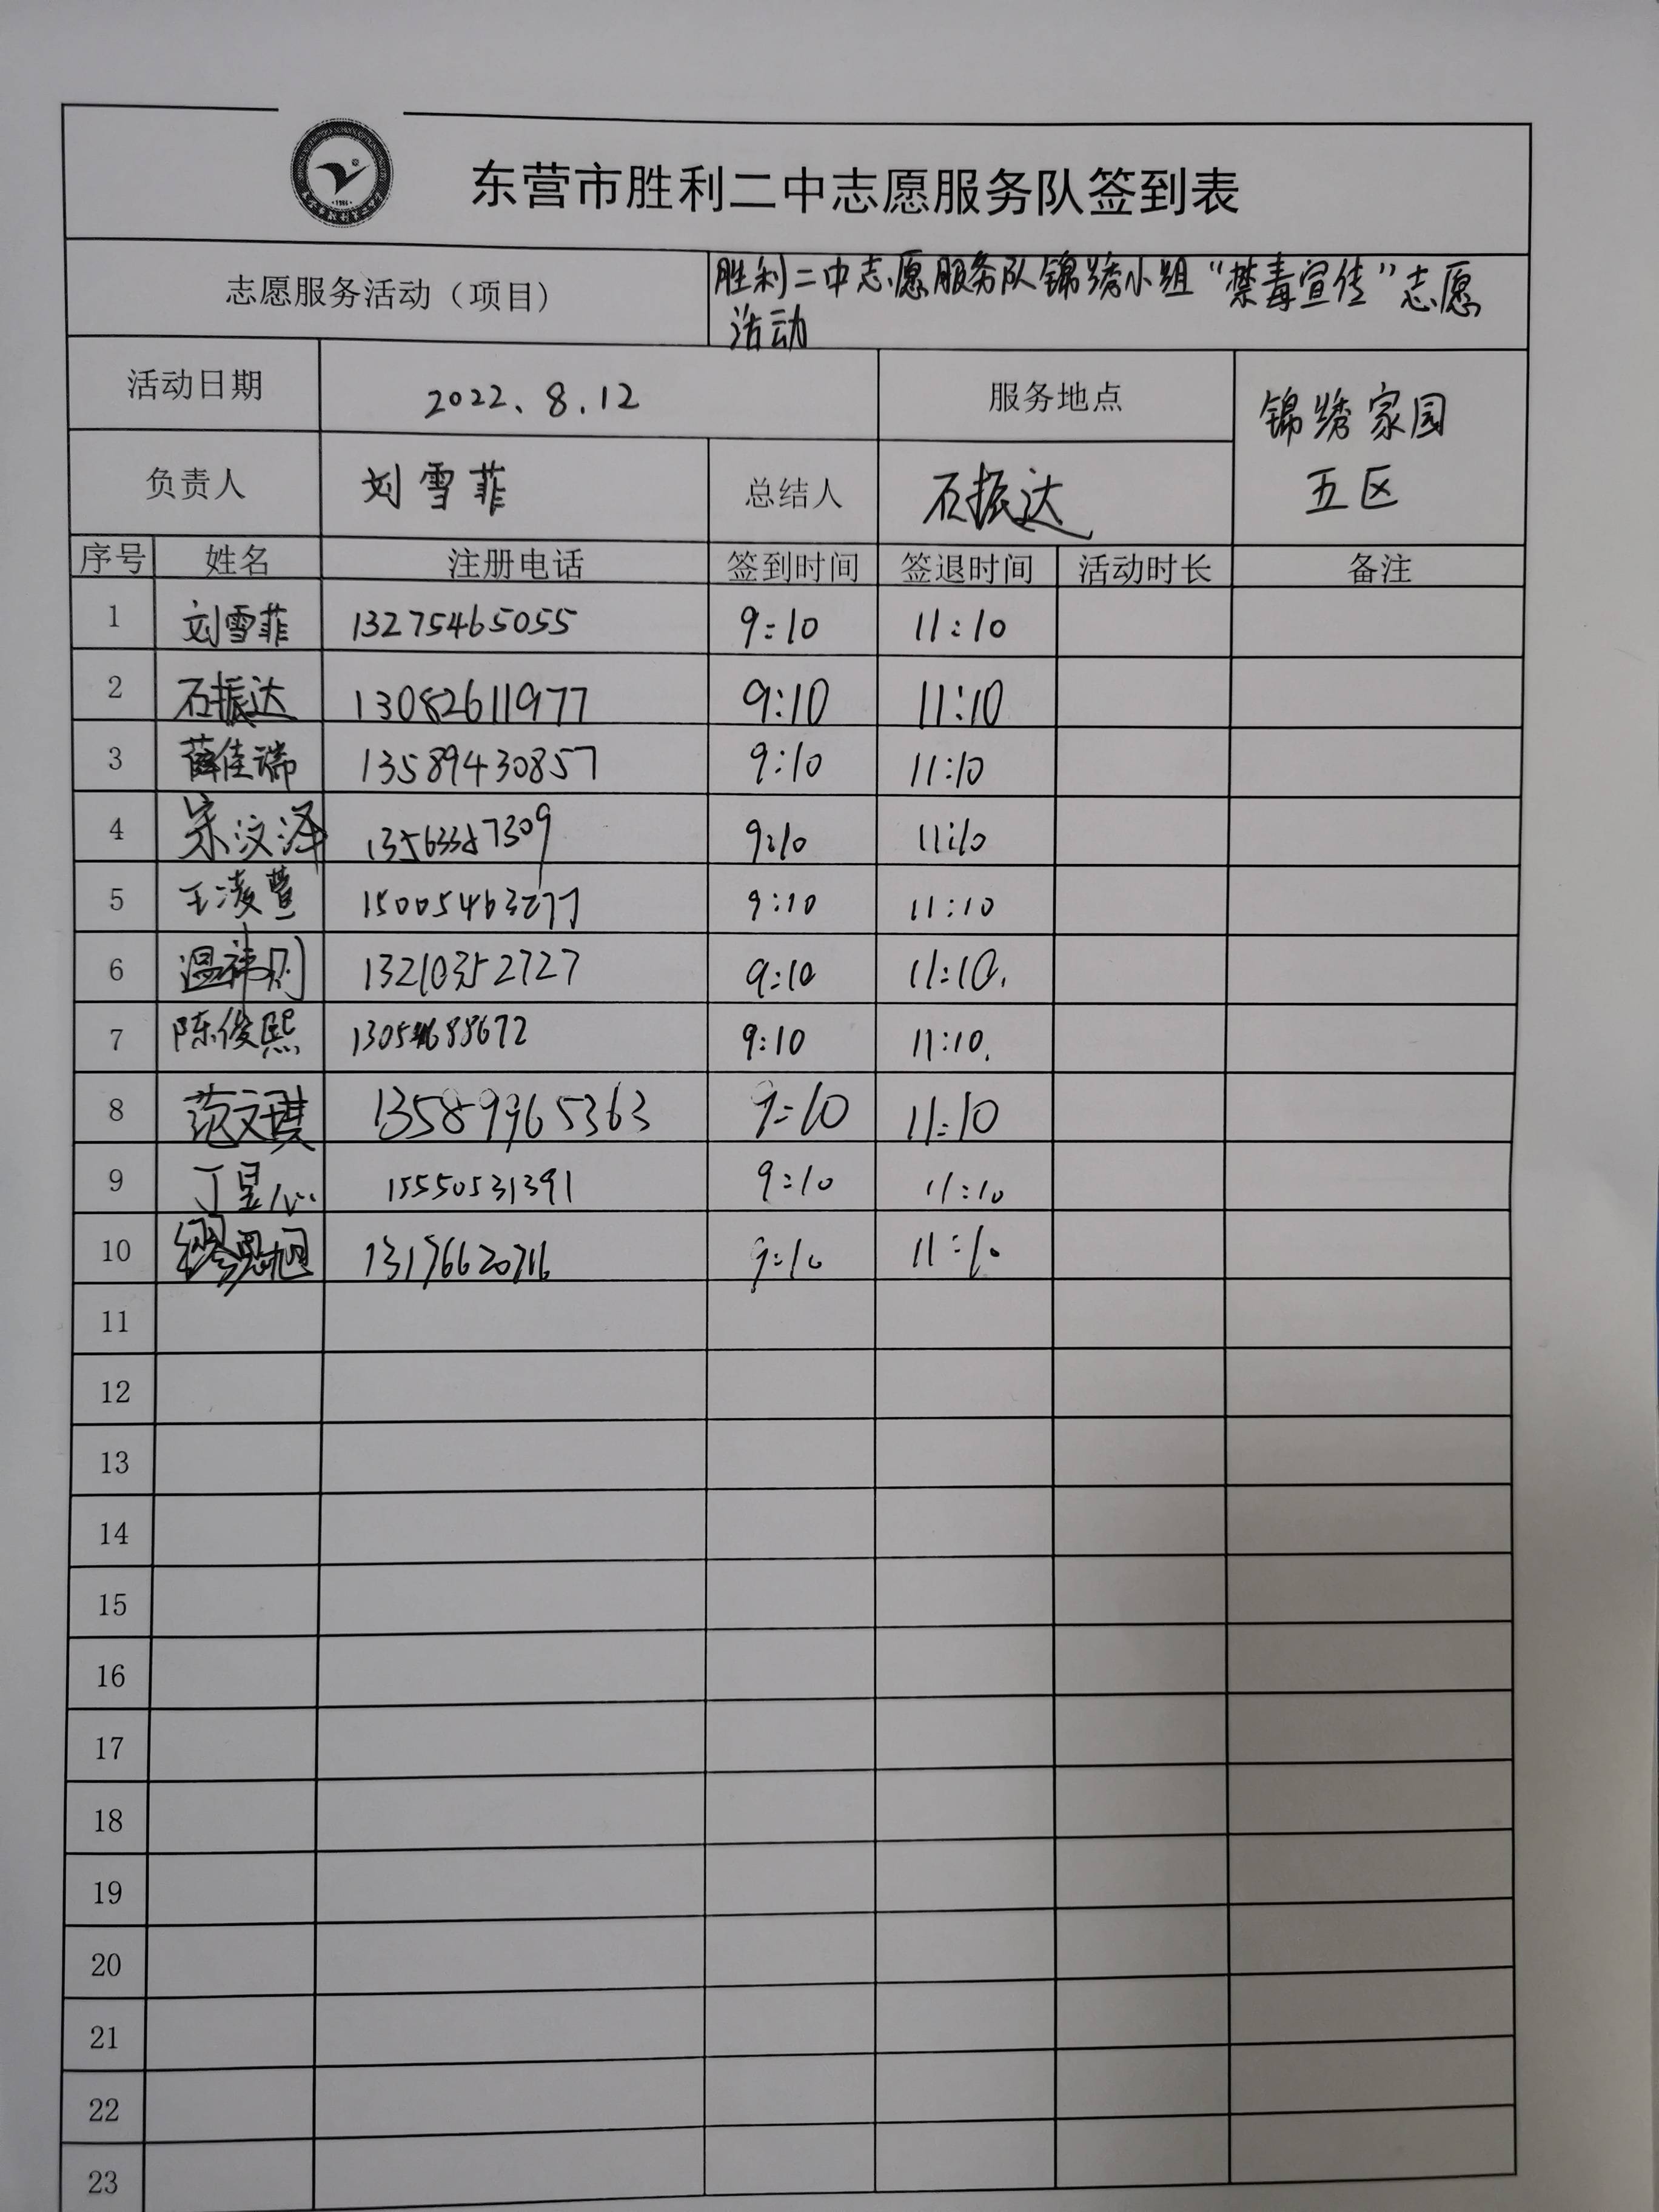 东营市胜利二中志愿服务队签到表
志愿服务活动（项目） 胜利二中志愿服务队锦绣小组“禁毒宣传”志愿
活动
活动日期 2022.8.12 服务地点 锦绣家园
五区
负责人 刘雪菲 总结人 石振达
序号 姓名 注册电话 签到时间 签退时间 活动时长 备注
1 刘雪菲 13275465055 9:10 11:10
2 石振达 13082611977 9:10 11:10
3 薛佳瑞 13589430857 9:10 11:10
4 宋汶泽 9:10 11:10
5 王凌萱 15005463277 9:10 11:10
6 13210352727 9:10 11:10.
7 陈俊熙 9:10 11:10.
8 范文琪 13589965363 9:10 11:10
9 丁昱心 15550531391 9:10 11:10
10 缪思旭 13176620716 9:10 11:10
11
12
13
14
15
16
17
18
19
20
21
22
23